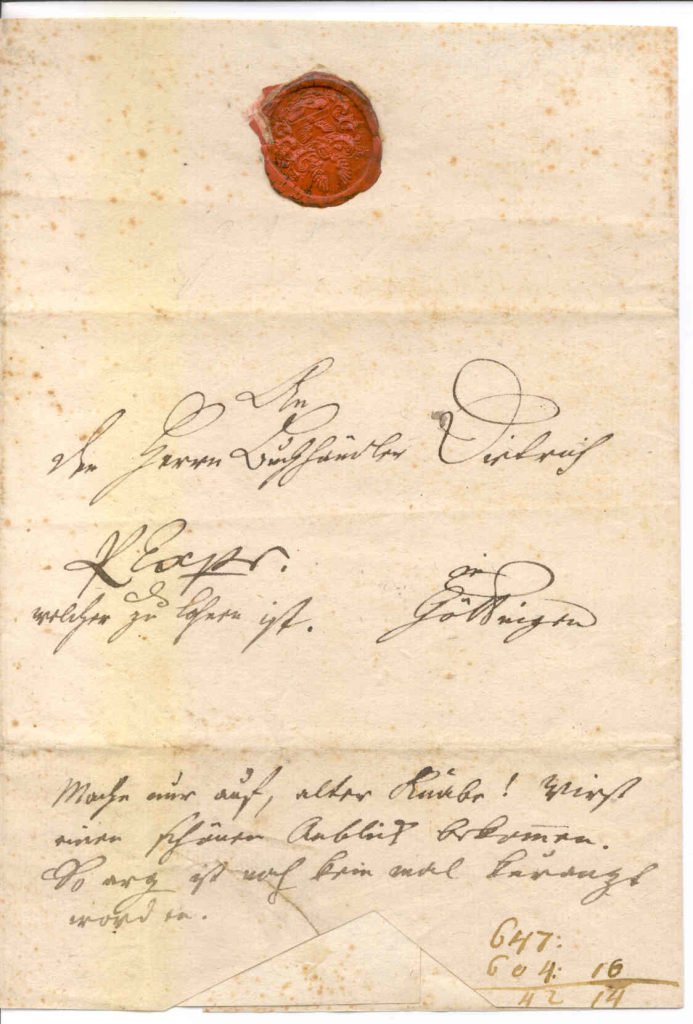 An
den Herrn Buchhändler Dietrich
P Expr.
in
welcher zu lohnen ist. Göttingen
Mache nur auf, alter Knabe! Wirst
einen schönen Anblick bekommen.
So arg ist noch kein mal
worden.
647:
604: 16
42 14